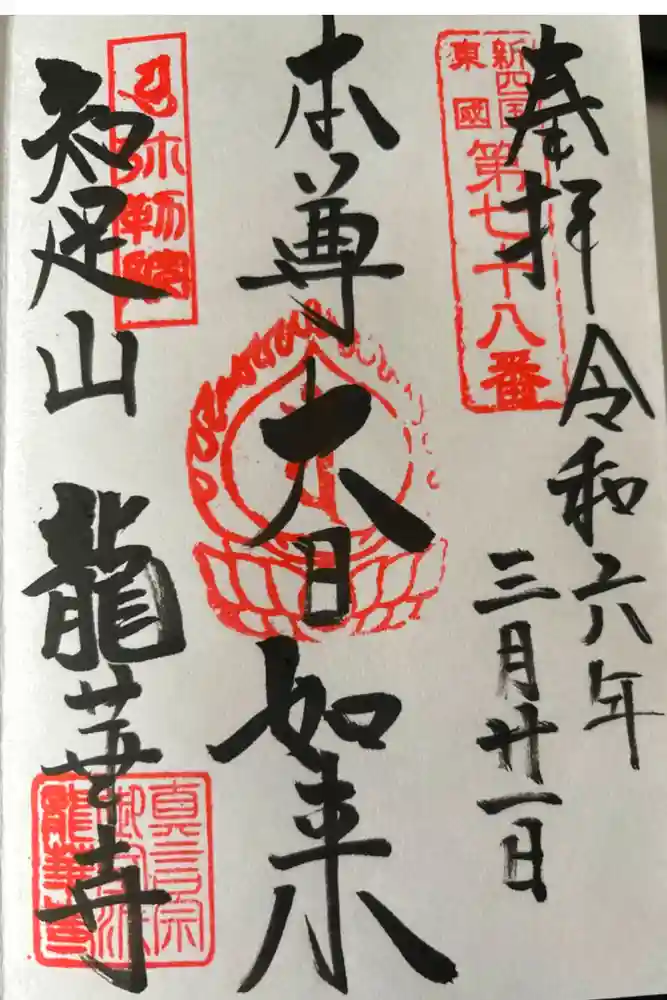 奉拝 令和六年
三月廿一日
新四国
東國
第七十八番
本尊 大日如来
弥勒院
知足山 龍華寺
真言宗
御室派
龍華寺